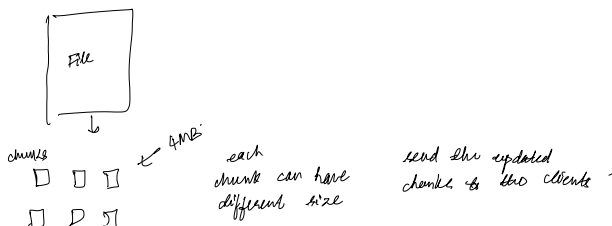 File
chunks
4MB
each
chunk can have
different size
send the updated
chunks to the clients